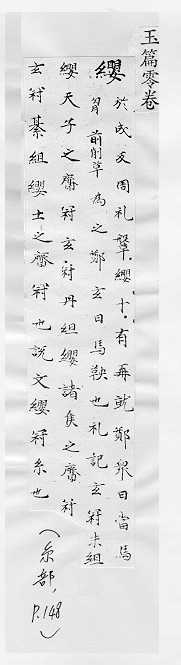 玉篇零卷
纓
於成反周礼鞶纓十有再就鄭衆曰當馬
胷前削革為之鄭玄曰馬鞅也礼記玄冠朱組
纓天子之齋冠玄冠丹組纓諸侯之齋冠
玄冠綦組纓士之齋冠也說文纓冠糸也
(糸部, P.148)